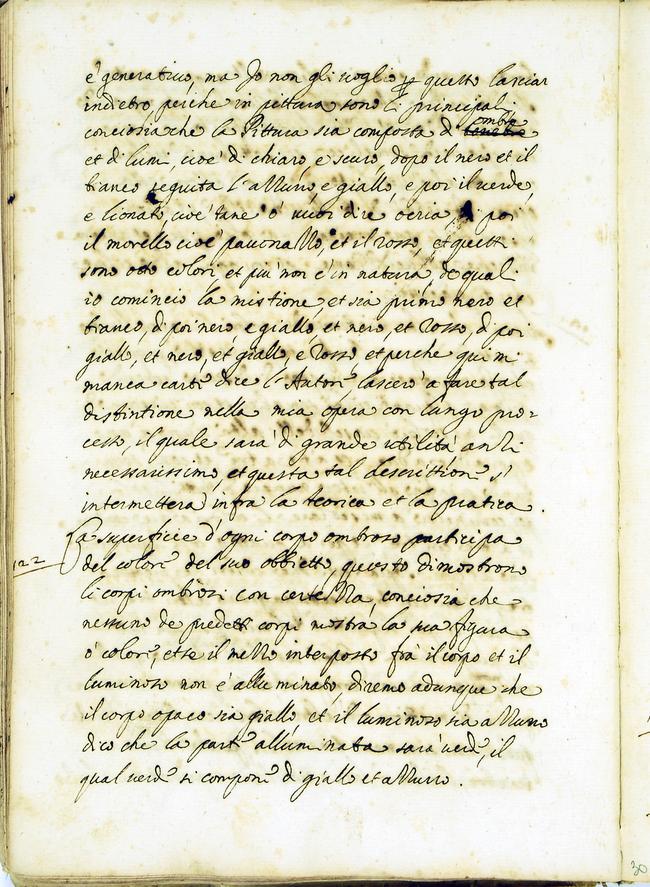 è generativo, ma Io non gli voglio per questo lasciar
indietro perche in pittura sono li principali
conciosia che la Pittura sia composta d' ombre
et di lumi, cioè di chiaro, e scuro, dopo il nero et il
bianco seguita l'azzurro, e giallo, e poi il verde,
e lionato, cioè tanè o' vuoi dire ocria, di poi
il morello cioè pauonazzo, et il rosso, et questi
sono otto colori, et più non è in natura, de quali
io comincio la mistione, et sia primo nero et
bianco, di poi nero, e giallo et nero, et rosso, di poi
giallo, et nero, et giallo, e rosso et perche qui mi
manca carta dice l'Autore lascerò a fare tal
distintione nella mia opera con lungo pro=
cesso, il quale sarà di grande utilità anzi
necessarissimo, et questa tal descrittione si
intermetterà infra la teorica et la pratica.
122 La superficie d'ogni corpo ombroso participa
del colore del suo obbietto, questo dimostrono
li corpi ombrosi con certezza, conciosia che
nessuno de predetti corpi mostra la sua figura
o' colore, et se il mezzo interposto frà il corpo et il
luminoso non è alluminato diremo adunque che
il corpo opaco sia giallo, et il luminoso sia azzurro
dico che la parte alluminata sarà verde, il
qual verde si compone di giallo et azzurro.
30